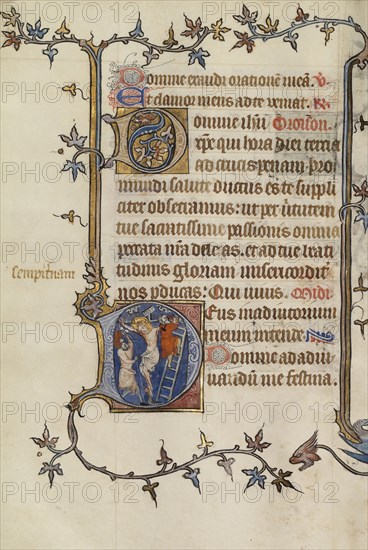 Domine exaudi oratione mea. V
Et clamor meus ad te veniat. R
omine ihu Oroison.
xpe qui hora diei tercia
ad crucis penam pro
mundi salute ductus es te suppli
citer obsecramus: ut per virtutem
tue sacratissime passionis omnia
peccata nra deleas. et ad tue beati
tudinis gloriam misericordit
sempiternam
nos pducas: Qui vivis. Midi
Eus in adiutorium
meum intende.
Domine ad adiu
uandum me festina.